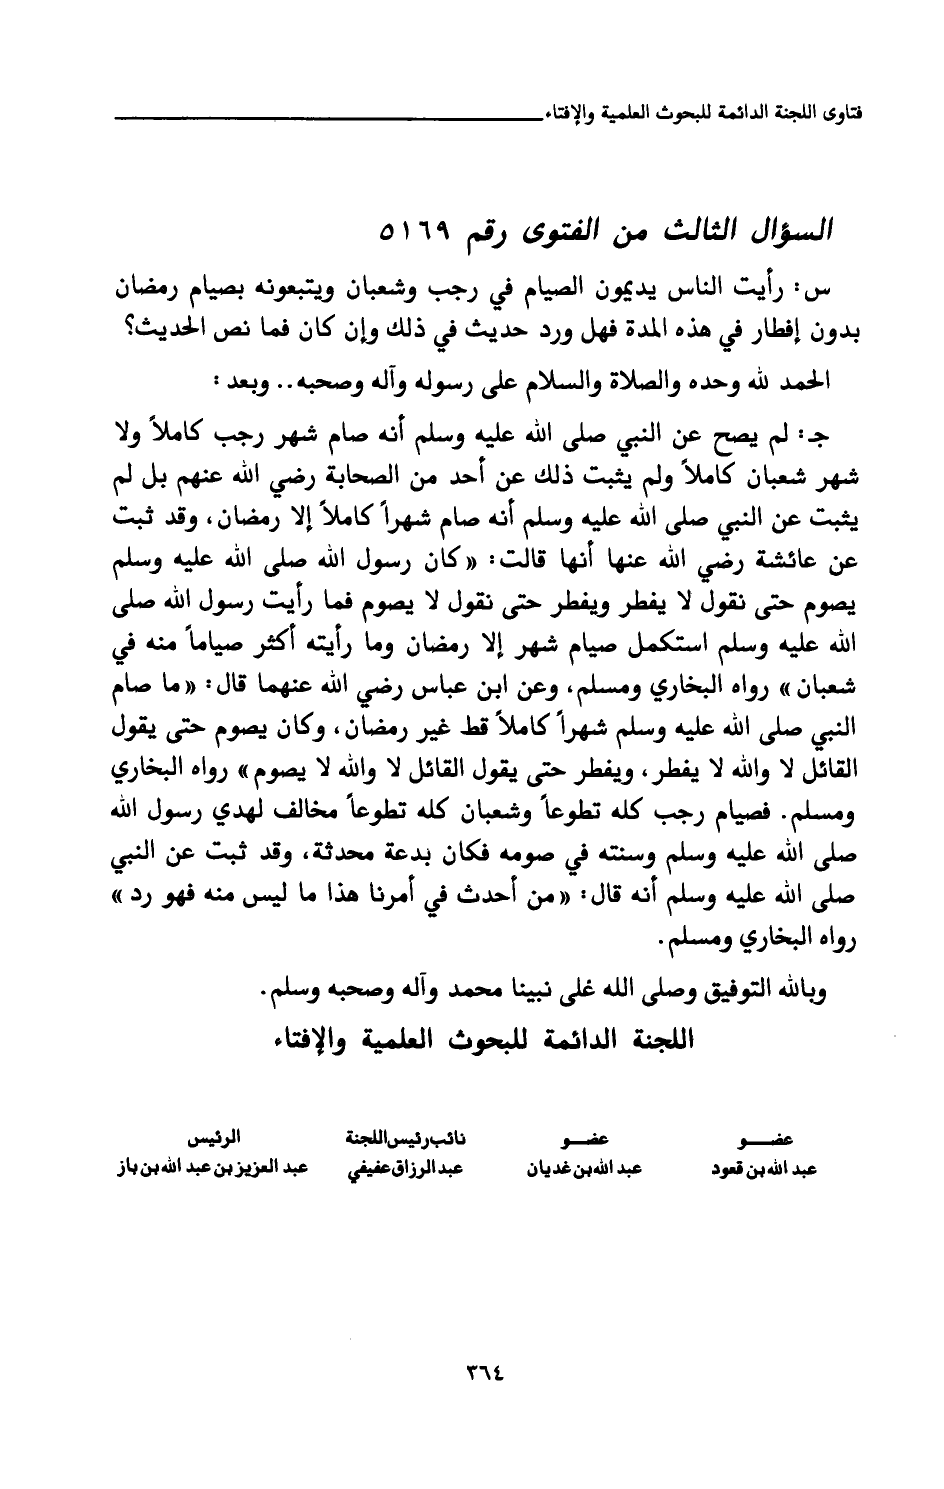 فتاوى اللجنة الدائمة للبحوث العلمية والإفتاء
السؤال الثالث من الفتوى رقم ٥١٦٩
س: رأيت الناس يديمون الصيام في رجب وشعبان ويتبعونه بصيام رمضان
بدون إفطار في هذه المدة فهل ورد حديث في ذلك وإن كان فما نص الحديث؟
الحمد لله وحده والصلاة والسلام على رسوله وآله وصحبه.. وبعد:
جـ: لم يصح عن النبي صلى الله عليه وسلم أنه صام شهر رجب كاملاً ولا
شهر شعبان كاملاً ولم يثبت ذلك عن أحد من الصحابة رضي الله عنهم بل لم
يثبت عن النبي صلى الله عليه وسلم أنه صام شهراً كاملاً إلا رمضان، وقد ثبت
عن عائشة رضي الله عنها أنها قالت: «كان رسول الله صلى الله عليه وسلم
يصوم حتى نقول لا يفطر ويفطر حتى نقول لا يصوم فما رأيت رسول الله صلى
الله عليه وسلم استكمل صيام شهر إلا رمضان وما رأيته أكثر صياماً منه في
شعبان» رواه البخاري ومسلم، وعن ابن عباس رضي الله عنهما قال: «ما صام
النبي صلى الله عليه وسلم شهراً كاملاً قط غير رمضان، وكان يصوم حتى يقول
القائل لا والله لا يفطر، ويفطر حتى يقول القائل لا والله لا يصوم» رواه البخاري
ومسلم. فصيام رجب كله تطوعاً وشعبان كله تطوعاً مخالف لهدي رسول الله
صلى الله عليه وسلم وسنته في صومه فكان بدعة محدثة، وقد ثبت عن النبي
صلى الله عليه وسلم أنه قال: «من أحدث في أمرنا هذا ما ليس منه فهو رد»
رواه البخاري ومسلم.
وبالله التوفيق وصلى الله على نبينا محمد وآله وصحبه وسلم.
اللجنة الدائمة للبحوث العلمية والإفتاء
عضـــو عضـــو نائب رئيس اللجنة الرئيس
عبد الله بن قعود عبد الله بن غديان عبد الرزاق عفيفي عبد العزيز بن عبد الله بن باز
٣٦٤